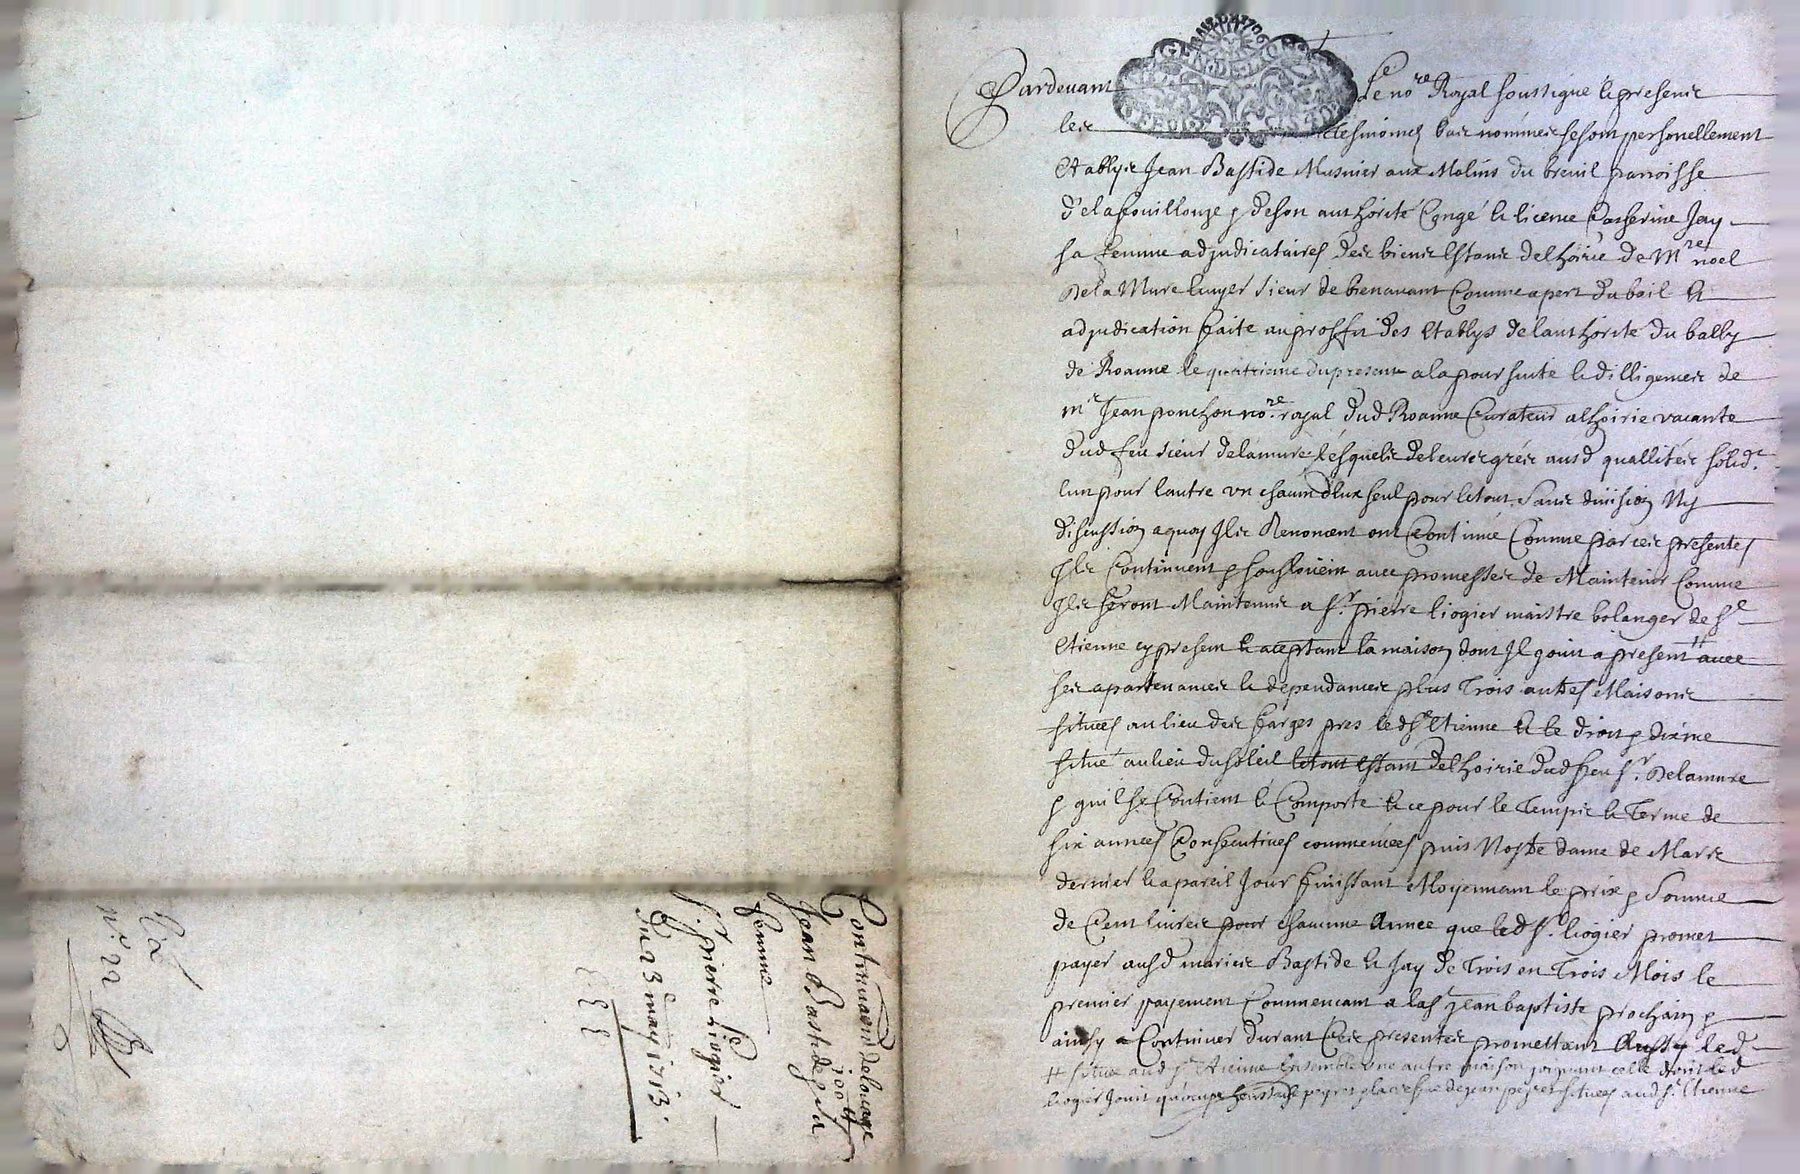 Pardevant Le no.re Royal soussigné & presents
les tesmoins bas nommes se sont personellement
Etablys Jean Bastide Musnier aux Molins du breuil parroisse
de lafouillouze & de son authorité Congé & licence Catherine Jay
sa femme adjudicataires des biens Estants de lhoirie de Mre noel
De la Mure Euyer sieur de bienavant Comme apert du bail &
adjudication faite au proffit des Etablys de lauthorité du bally
de Roanne le quatrieme du present a la poursuite & dilligences de
mr Jean ponchon no.re royal dud Roanne Curateur a lhoirie vacante
dud feu sieur delamure lesquels de leurs grés ausd quallités solid.t
lun pour lautre un chacun deux seul pour le tout sans division Ny
discussion a quoy Ils Renoncent ont Continué Comme par ces presentes
Ils Continuent & avec promesses de Maintenir Comme
Ils seront Maintenus a sr. pierre liogier maistre bolanger de St
Etienne cy present & aceptant la maison dont Il jouit a present # avec
ses apartenances & dependances plus Trois autres Maisons
situees au lieu des farges pres led St Etienne & le droit & dixme
situé au lieu du soleil le tout Estant de lhoirie dud feu sr. Delamure
& quil se Contient & Comporte & ce pour le Temps & Terme de
six annees Consecutives commencees puis Nostre dame de Mars
dernier & a pareil Jour finissant Moyennant le prix & Somme
de Cent livres pour chacune Annee que led sr. liogier promet
payer ausd maries Bastide & Jay de Trois en Trois Mois le
premier payement Commencant a la St Jean baptiste prochain &
ainsy a Continuer durant Ces presentes promettant Aussy led
# situee aud St Etienne Ensemble une autre maison joignant celle dont led
liogier Jouit quocupe peyret de jean peyret situees aud St. Etienne
Continuaon de louage
100 #
Jean Bastide & sa
femme
Sr. pierre Liogier
Du 23e may 1713
Cod
n.o 22